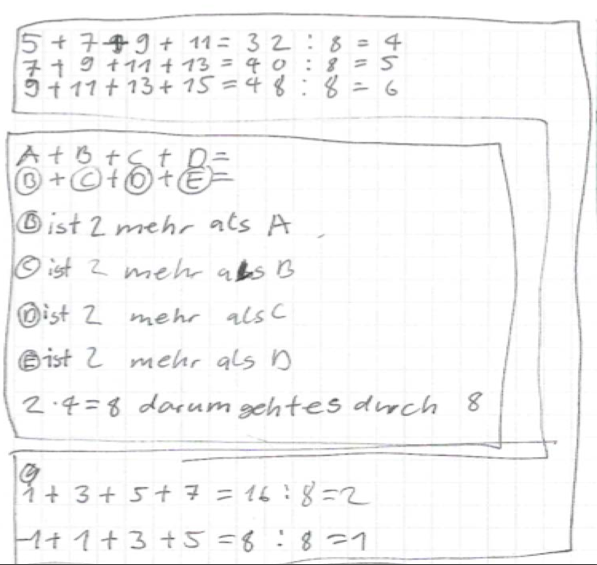 5 + 7 + 9 + 11 = 32 : 8 = 4
7 + 9 + 11 + 13 = 40 : 8 = 5
9 + 11 + 13 + 15 = 48 : 8 = 6
A + B + C + D =
B + C + D + E =
B ist 2 mehr als A
C ist 2 mehr als B
D ist 2 mehr als C
E ist 2 mehr als D
2 · 4 = 8 darum geht es durch 8
1 + 3 + 5 + 7 = 16 : 8 = 2
-1 + 1 + 3 + 5 = 8 : 8 = 1